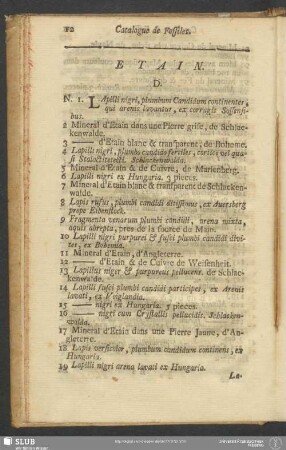 12 Catalogue de Fossiles.
ETAIN.
D.
N. 1. LApilli nigri, plumbum Candidum continentes,
qui arenis lavantur, ex corrugis
bus.
2 Mineral d'Etain dans une Pierre grise, de Schlackenwalde.
3 —— d'Etain blanc & transparent, de Boheme.
4 Lapilli nigri, plumbo candido fertiles, corticis vel quasi
Schlackenwalda.
5 Mineral d'Etain & de Cuivre, de Marienberg.
6 Lapilli nigri ex Hungaria. 3 pieces.
7 Mineral d'Etain blanc & transparent de Schlackenwalde.
8 Lapis rufus, plumbi candidi ditissimus, ex Auersberg
prope Eibenstock.
9 Fragmenta venarum plumbi candidi, arena mixta,
aquis abrepta, pres de la source du Main.
10 Lapilli nigri purpurei & fusci plumbi candidi divites,
ex Bohemia.
11 Mineral d'Etain, d'Angleterre.
12 —— d'Etain & de Cuivre de Weissenheit.
13 Lapillus niger & purpureus pellucens. de Schlackenwalde.
14 Lapilli fusci plumbi candidi participes, ex Arenis
lavati, ex Voiglandia.
15 —— nigri ex Hungaria. 5 pieces.
16 —— nigri cum Crystallis pellucidis. Schlackenwalda.
17 Mineral d'Etain dans une Pierre Jaune, d'Angleterre.
18 Lapis versicolor, plumbum candidum continens, ex
Hungaria.
19 Lapilli nigri arena lavati ex Hungaria.
La-
SLUB